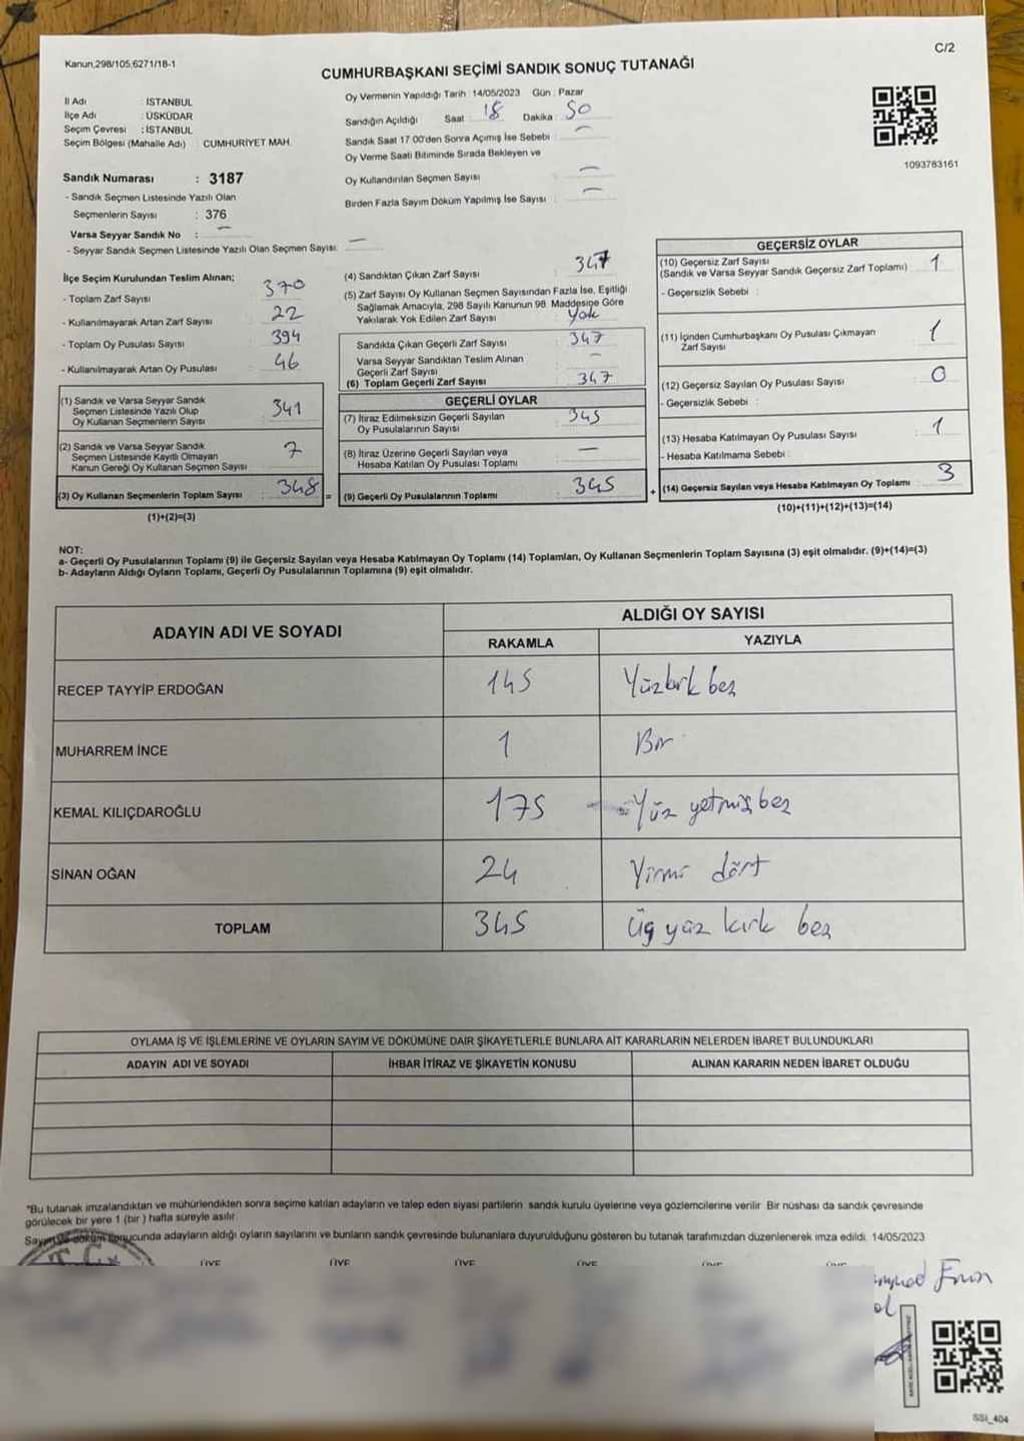 Kanun,298/105,6271/18-1
C/2
CUMHURBAŞKANI SEÇİMİ SANDIK SONUÇ TUTANAĞI
İl Adı : İSTANBUL
İlçe Adı : ÜSKÜDAR
Seçim Çevresi : İSTANBUL
Seçim Bölgesi (Mahalle Adı) : CUMHURİYET MAH.
Sandık Numarası : 3187
- Sandık Seçmen Listesinde Yazılı Olan
Seçmenlerin Sayısı : 376
Varsa Seyyar Sandık No : —
- Seyyar Sandık Seçmen Listesinde Yazılı Olan Seçmen Sayısı: —
Oy Vermenin Yapıldığı Tarih : 14/05/2023 Gün : Pazar
Sandığın Açıldığı Saat : 18 Dakika : 50
Sandık Saat 17.00'den Sonra Açımış İse Sebebi : —
Oy Verme Saati Bitiminde Sırada Bekleyen ve
Oy Kullandırılan Seçmen Sayısı : —
Birden Fazla Sayım Döküm Yapılmış İse Sayısı : —
1093783161
İlçe Seçim Kurulundan Teslim Alınan;
- Toplam Zarf Sayısı : 370
- Kullanılmayarak Artan Zarf Sayısı : 22
- Toplam Oy Pusulası Sayısı : 394
- Kullanılmayarak Artan Oy Pusulası : 46
(1) Sandık ve Varsa Seyyar Sandık
Seçmen Listesinde Yazılı Olup
Oy Kullanan Seçmenlerin Sayısı : 341
(2) Sandık ve Varsa Seyyar Sandık
Seçmen Listesinde Kayıtlı Olmayan
Kanun Gereği Oy Kullanan Seçmen Sayısı : 7
(3) Oy Kullanan Seçmenlerin Toplam Sayısı : 348 =
(1)+(2)=(3)
(4) Sandıktan Çıkan Zarf Sayısı : 347
(5) Zarf Sayısı Oy Kullanan Seçmen Sayısından Fazla İse, Eşitliği
Sağlamak Amacıyla, 298 Sayılı Kanunun 98. Maddesine Göre
Yakılarak Yok Edilen Zarf Sayısı : Yok
Sandıkta Çıkan Geçerli Zarf Sayısı : 347
Varsa Seyyar Sandıktan Teslim Alınan
Geçerli Zarf Sayısı : —
(6) Toplam Geçerli Zarf Sayısı : 347
GEÇERLİ OYLAR
(7) İtiraz Edilmeksizin Geçerli Sayılan
Oy Pusulalarının Sayısı : 345
(8) İtiraz Üzerine Geçerli Sayılan veya
Hesaba Katılan Oy Pusulası Toplamı : —
(9) Geçerli Oy Pusulalarının Toplamı : 345 +
GEÇERSİZ OYLAR
(10) Geçersiz Zarf Sayısı
(Sandık ve Varsa Seyyar Sandık Geçersiz Zarf Toplamı) : 1
- Geçersizlik Sebebi :
(11) İçinden Cumhurbaşkanı Oy Pusulası Çıkmayan
Zarf Sayısı : 1
(12) Geçersiz Sayılan Oy Pusulası Sayısı : 0
- Geçersizlik Sebebi :
(13) Hesaba Katılmayan Oy Pusulası Sayısı : 1
- Hesaba Katılmama Sebebi :
(14) Geçersiz Sayılan veya Hesaba Katılmayan Oy Toplamı : 3
(10)+(11)+(12)+(13)=(14)
NOT:
a- Geçerli Oy Pusulalarının Toplamı (9) ile Geçersiz Sayılan veya Hesaba Katılmayan Oy Toplamı (14) Toplamları, Oy Kullanan Seçmenlerin Toplam Sayısına (3) eşit olmalıdır. (9)+(14)=(3)
b- Adayların Aldığı Oyların Toplamı, Geçerli Oy Pusulalarının Toplamına (9) eşit olmalıdır.
ADAYIN ADI VE SOYADI ALDIĞI OY SAYISI
RAKAMLA YAZIYLA
RECEP TAYYİP ERDOĞAN 145 Yüzkırk beş
MUHARREM İNCE 1 Bir
KEMAL KILIÇDAROĞLU 175 Yüz yetmiş beş
SİNAN OĞAN 24 Yirmi dört
TOPLAM 345 Üç yüz kırk beş
OYLAMA İŞ VE İŞLEMLERİNE VE OYLARIN SAYIM VE DÖKÜMÜNE DAİR ŞİKAYETLERLE BUNLARA AİT KARARLARIN NELERDEN İBARET BULUNDUKLARI
ADAYIN ADI VE SOYADI İHBAR İTİRAZ VE ŞİKAYETİN KONUSU ALINAN KARARIN NEDEN İBARET OLDUĞU
"Bu tutanak imzalandıktan ve mühürlendikten sonra seçime katılan adayların ve talep eden siyasi partilerin sandık kurulu üyelerine veya gözlemcilerine verilir. Bir nüshası da sandık çevresinde
görülecek bir yere 1 (bir ) hafta süreyle asılır.
Sayım ve döküm sonucunda adayların aldığı oyların sayılarını ve bunların sandık çevresinde bulunanlara duyurulduğunu gösteren bu tutanak tarafımızdan düzenlenerek imza edildi. 14/05/2023
T.C.
ÜYE ÜYE ÜYE ÜYE ÜYE ÜYE
SSI_404